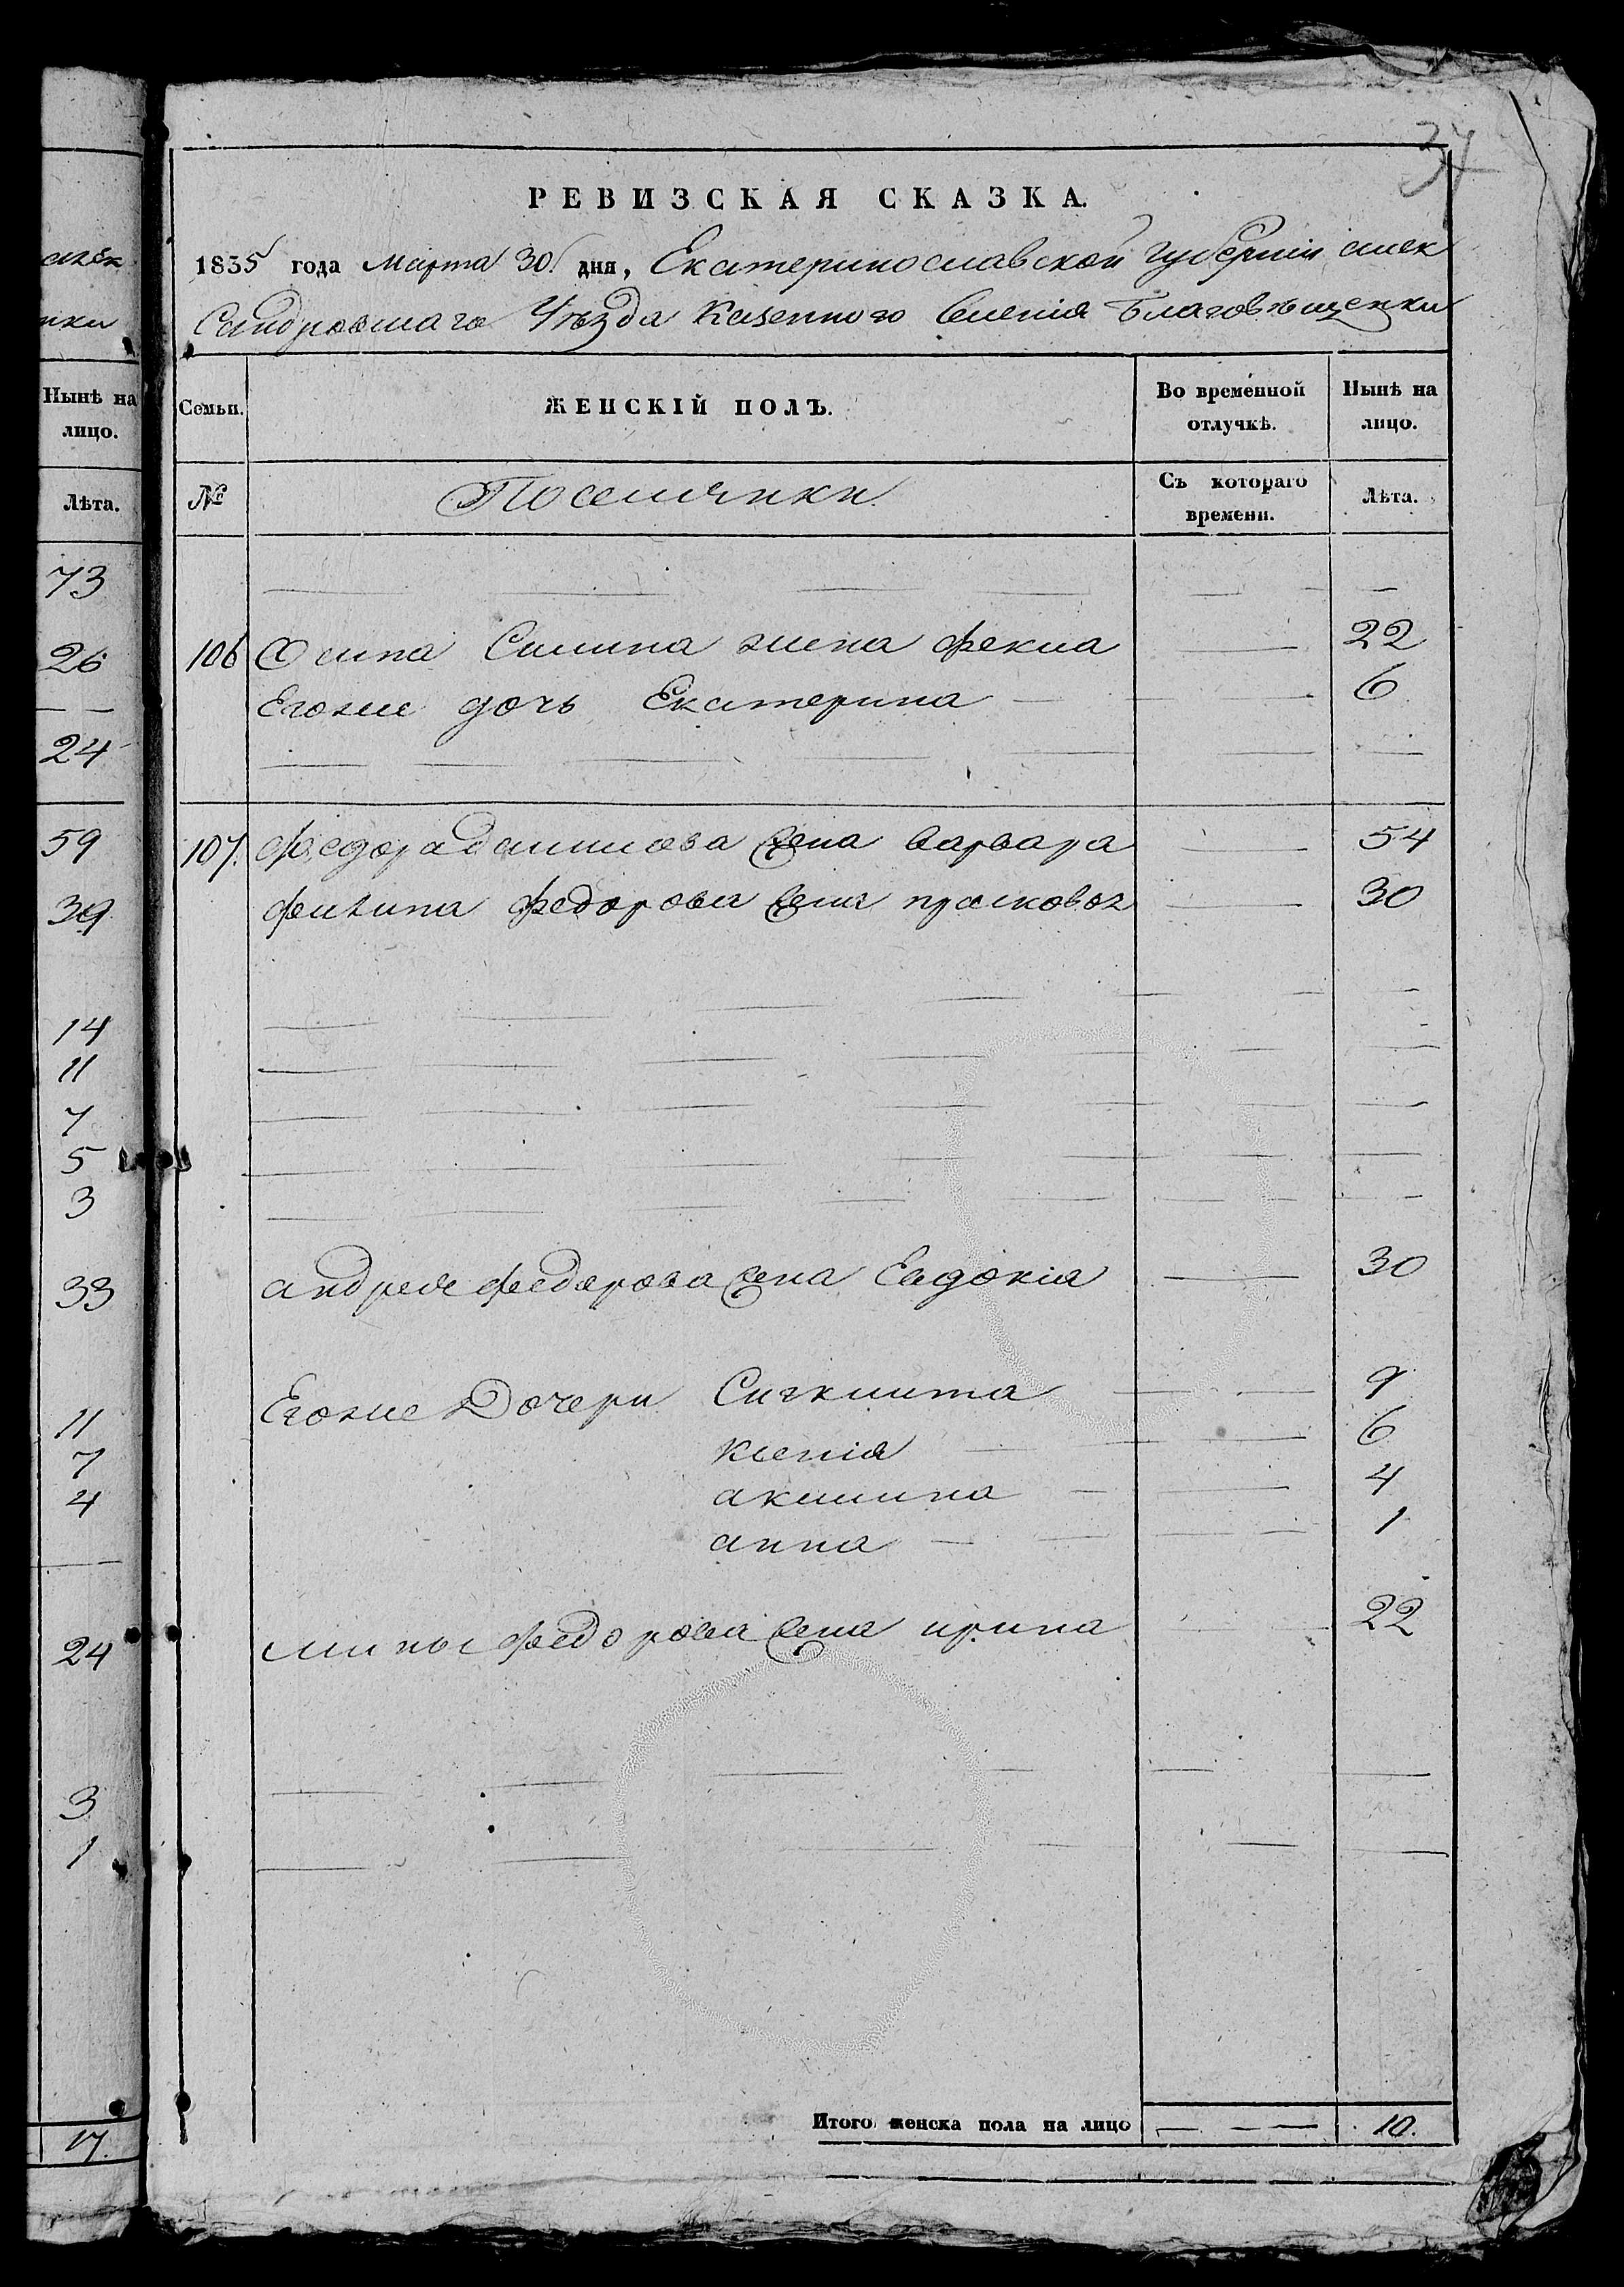 37
РЕВИЗСКАЯ СКАЗКА.
1835 года Марта 30 дня, Екатеринославской губерніи алек
сандровшаго Уѣзда Казенного Селенія Благовѣщенки
Семьи.
ЖЕНСКІЙ ПОЛЪ.
Во временной отлучкѣ.
Нынѣ на лицо.
№
Поселянки
Съ котораго времени.
Лѣта.
106 Осипа Силина жена Фекла 22
Егоже дочь Екатерина 6
107. Федора данилова жена варвара 54
филипа федорова жена прасковья 30
андрея федорова жена Евдокія 30
Егоже Дочери 9
ксенія 6
акилина 4
анна 1
мины федорова жена ирина 22
Итого женска пола на лицо 10.
Нынѣ на
лицо.
Лѣта.
73
26
24
59
39
14
11
7
5
3
33
11
7
4
24
3
1
17.